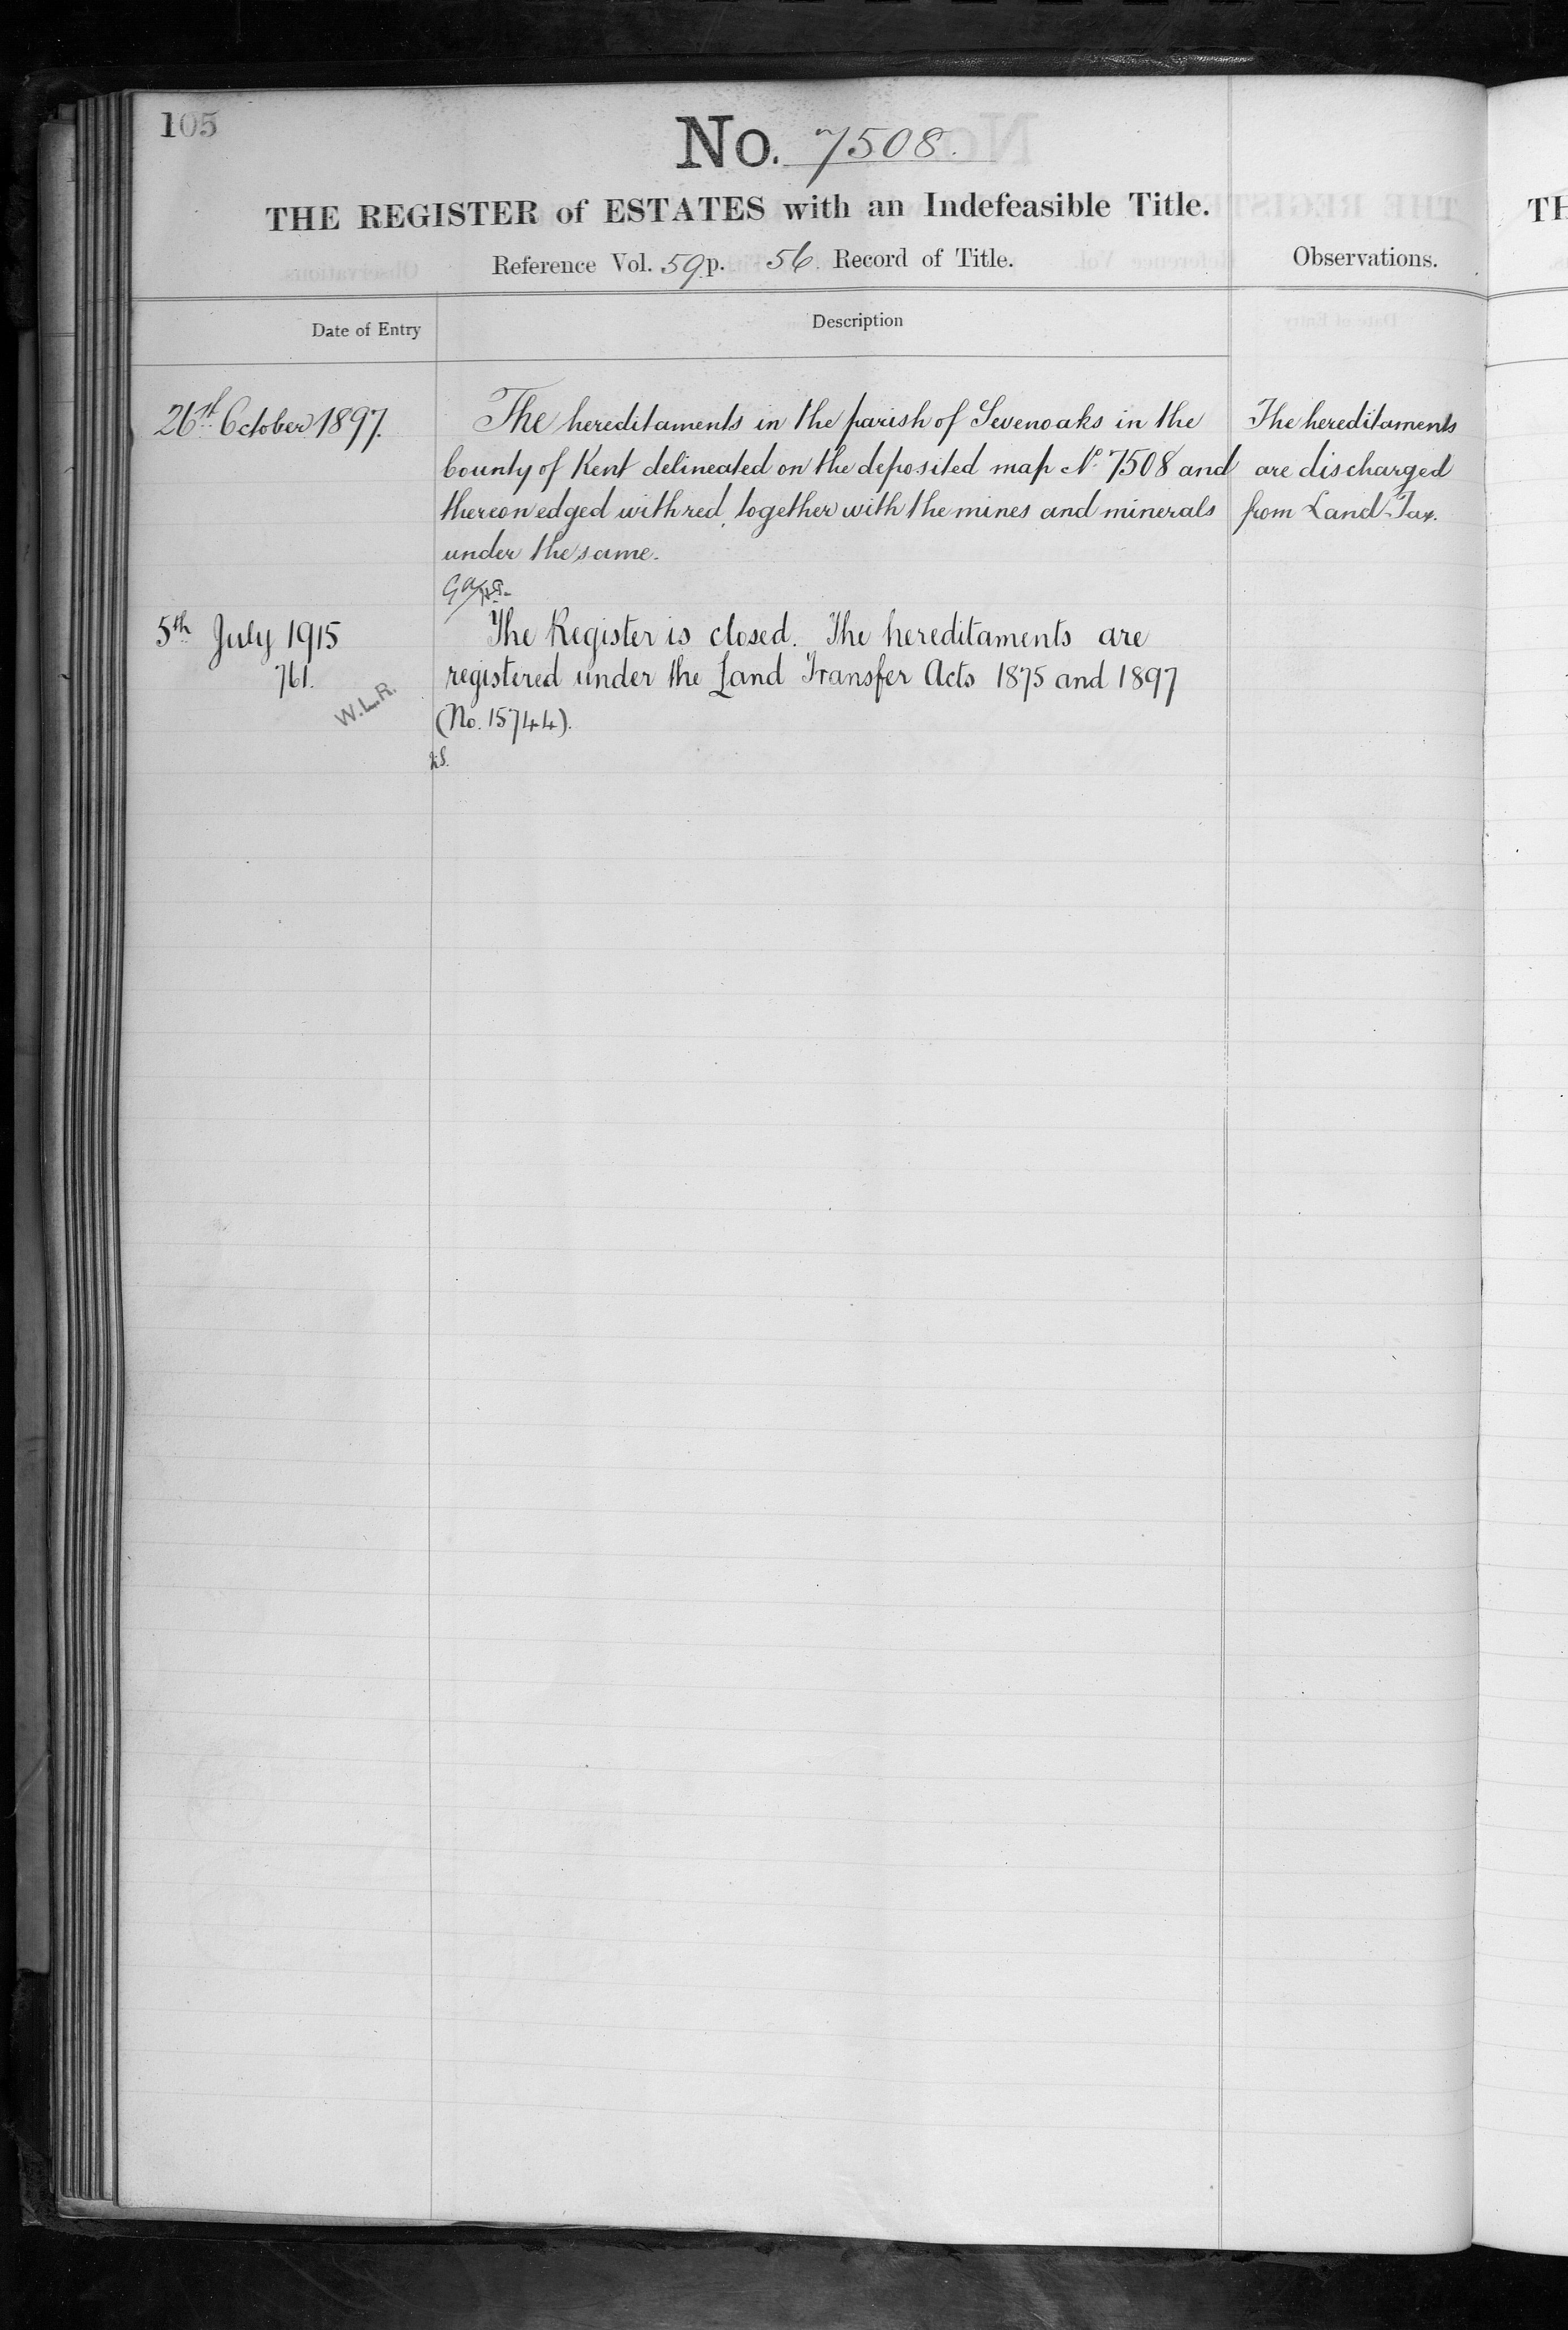 105
No. 7508.
THE REGISTER of ESTATES with an Indefeasible Title.
Reference Vol. 59 p. 56. Record of Title.
Observations.
Date of Entry
Description
October 1897.
The hereditaments in the parish of Sevenoaks in the
County of Kent delineated on the deposited map No. 7508 and
thereon edged with red, together with the mines and minerals
under the same.
The hereditaments
are discharged
from Land-Tax.
5th July 1915
761.
W.L.R.
The Register is closed. The hereditaments are
registered under the Land Transfer Acts 1875 and 1897
(No. 15744).
TH